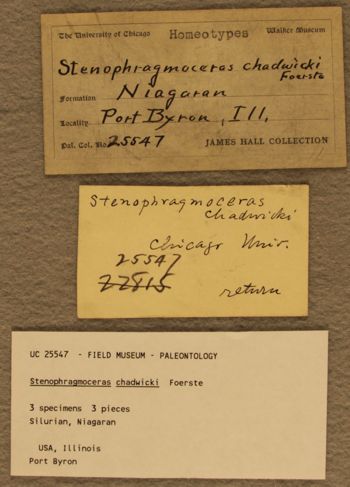 The University of Chicago Homeotypes Walker Museum
Stenophragmoceras chadwicki
Foerste
Formation Niagaran
Locality Port Byron, Ill.
Pal. Col. No. 25547 JAMES HALL COLLECTION
Stenophragmoceras
chadwicki
Chicago Univ.
25547
22815
return
UC 25547 - FIELD MUSEUM - PALEONTOLOGY
Stenophragmoceras chadwicki Foerste
3 specimens 3 pieces
Silurian, Niagaran
USA, Illinois
Port Byron